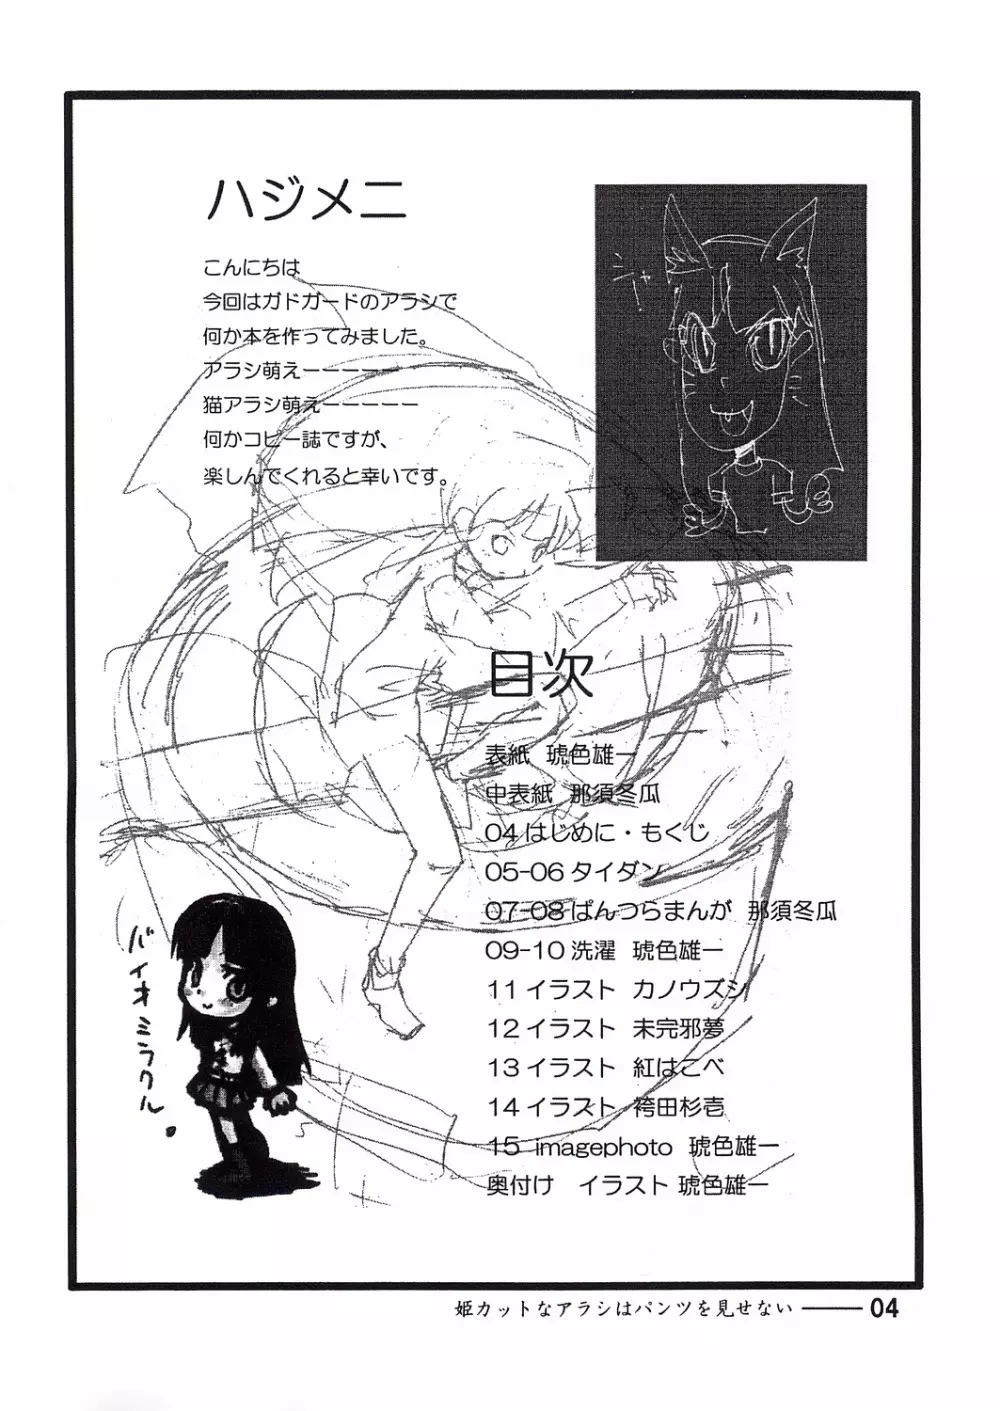 ハジメニ
こんにちは
今回はガドガードのアラシで
何か本を作ってみました。
アラシ萌えーーーーー
猫アラシ萌えーーーーー
何かコピー誌ですが、
楽しんでくれると幸いです。
シャー!
目次
表紙 琥色雄一
中表紙 那須冬瓜
04 はじめに・もくじ
05-06 タイダン
07-08 ぱんつらまんが 那須冬瓜
09-10 洗濯 琥色雄一
11 イラスト カノウズシ
12 イラスト 未完邪夢
13 イラスト 紅はこべ
14 イラスト 袴田杉壱
15 imagephoto 琥色雄一
奥付け イラスト 琥色雄一
バイオミラクル。
姫カットなアラシはパンツを見せない ―― 04